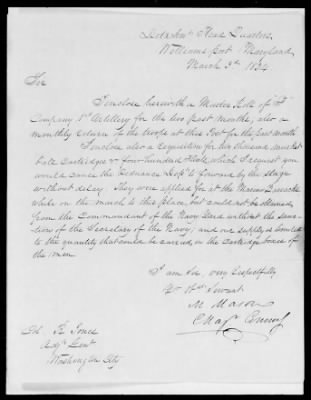 Head Quarters
Williams port Maryland
March 3d 1834
Sir
I enclose herewith a Muster Roll of "F"
Company 1st Artillery for the two past months, also a
monthly return of the troops at this Post for the past month
I enclose also a requisition for two thousand musket
Ball Cartridges & four hundred Flints, which I request you
would cause the Ordnance Dept to forward by the stage
without delay. They were applied for at the Marine Barracks
while on the march to this place, but could not be obtained
from the Commandant of the Navy Yard without the sanc-
tion of the Secretary of the Navy, and our supply is limited
to the quantity that could be carried in the Cartridge boxes of
the men
I am Sir, very respectfully
Yr Obt Servant
M. Mason
Col. R. Jones
Adjt Genl
Washington City